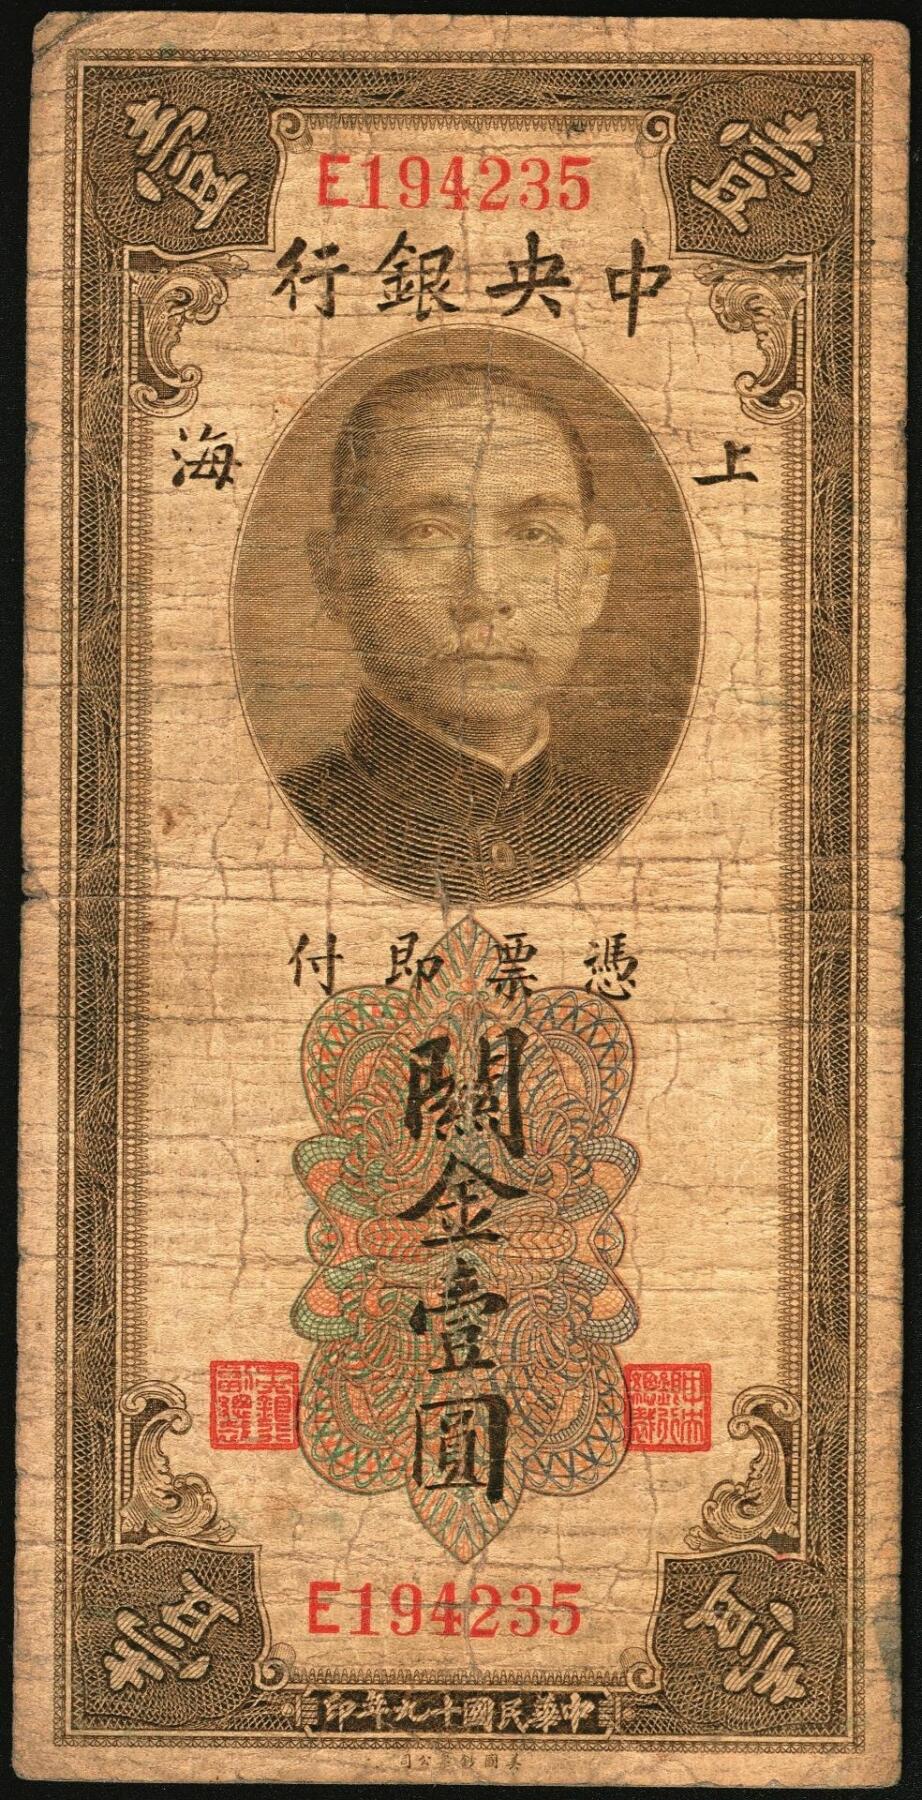 壹 壹
E194235
中央銀行
上海
憑票即付
關
金
壹
圓
中央銀行總裁
E194235
壹 壹
中華民國十九年印
美國鈔票公司